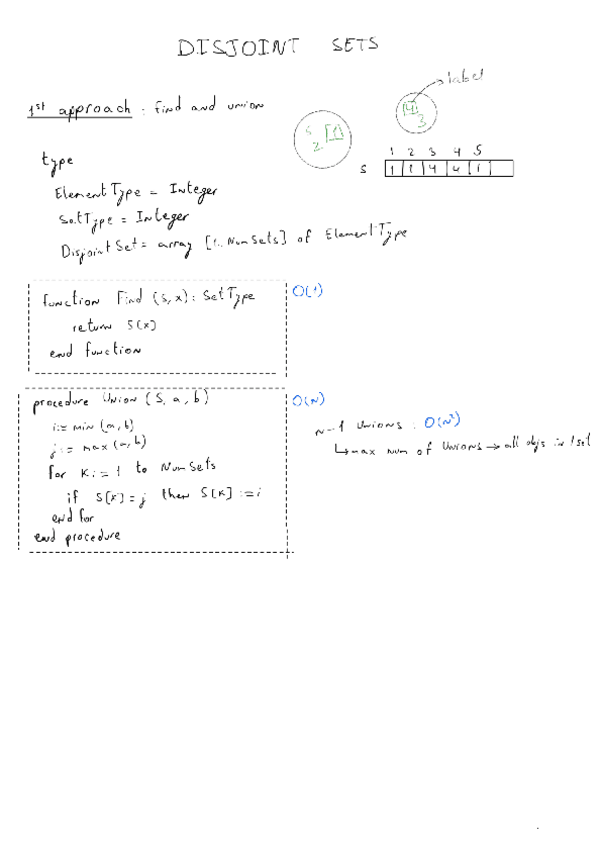 DISJOINT SETS
label
1st approach : Find and union
5 1
2
4
3
type
1 2 3 4 5
S 1 1 4 4 1
ElementType = Integer
SetType = Integer
DisjointSet = array [1..NumSets] of ElementType
function Find (S, x) : SetType
O(1)
return S(x)
end function
procedure Union (S, a, b)
O(N)
i := min (a, b)
j := max (a, b)
n-1 Unions : O(N²)
↳ max num of Unions → all objs in 1 set
for K := 1 to NumSets
if S[K] = j then S[K] := i
end for
end procedure